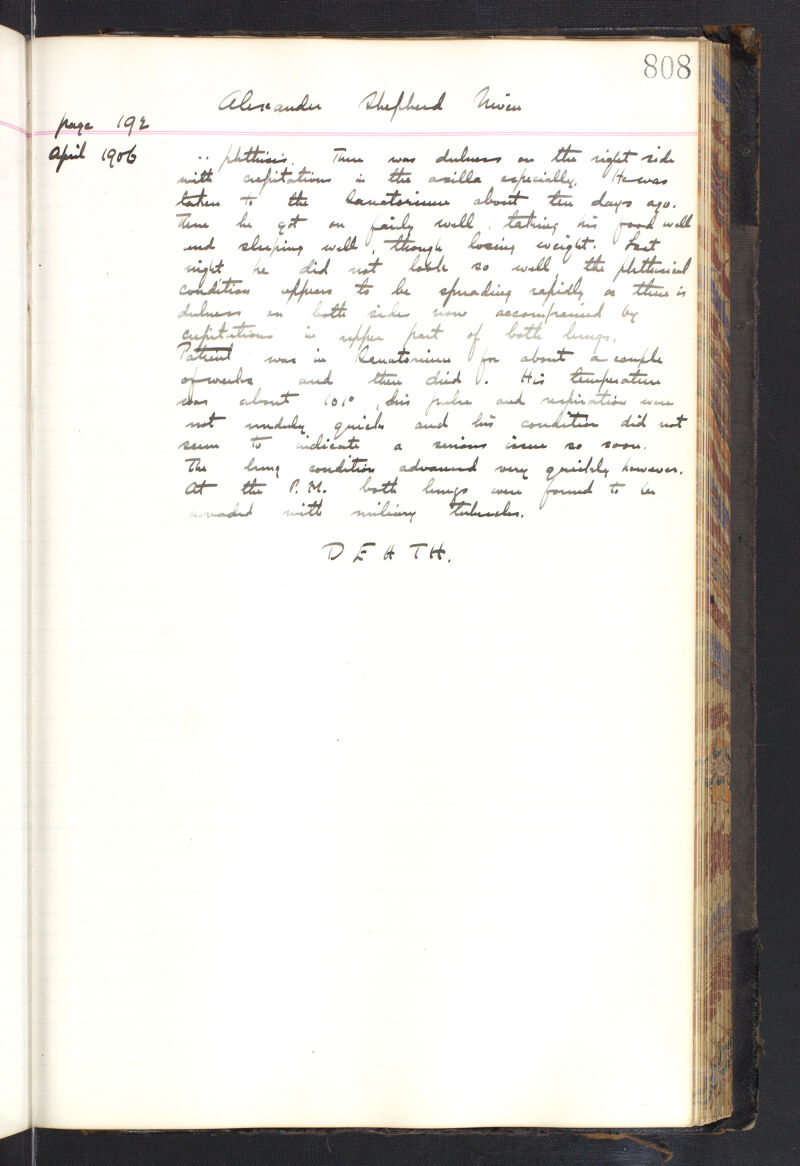 808
Alexander Shepherd Niven
page 192
April 1906
.. phthisis. There was dulness on the right side
with crepitations in the axilla especially. He was
taken to the Sanatorium about ten days ago.
There he got on fairly well, taking his food well
and sleeping well, though losing weight. Last
night he did not look so well, the phthisical
condition appears to be spreading rapidly as there is
dulness on both sides now accompanied by
crepitations in upper part of both lungs.
Patient was in Sanatorium for about a couple
of weeks and then died. His temperature
was about 101°, his pulse and respiration were
not unduly quick and his condition did not
seem to indicate a serious issue so soon.
The lung condition advanced very quickly however.
At the P.M. both lungs were found to be
invaded with miliary tubercles.
DEATH.